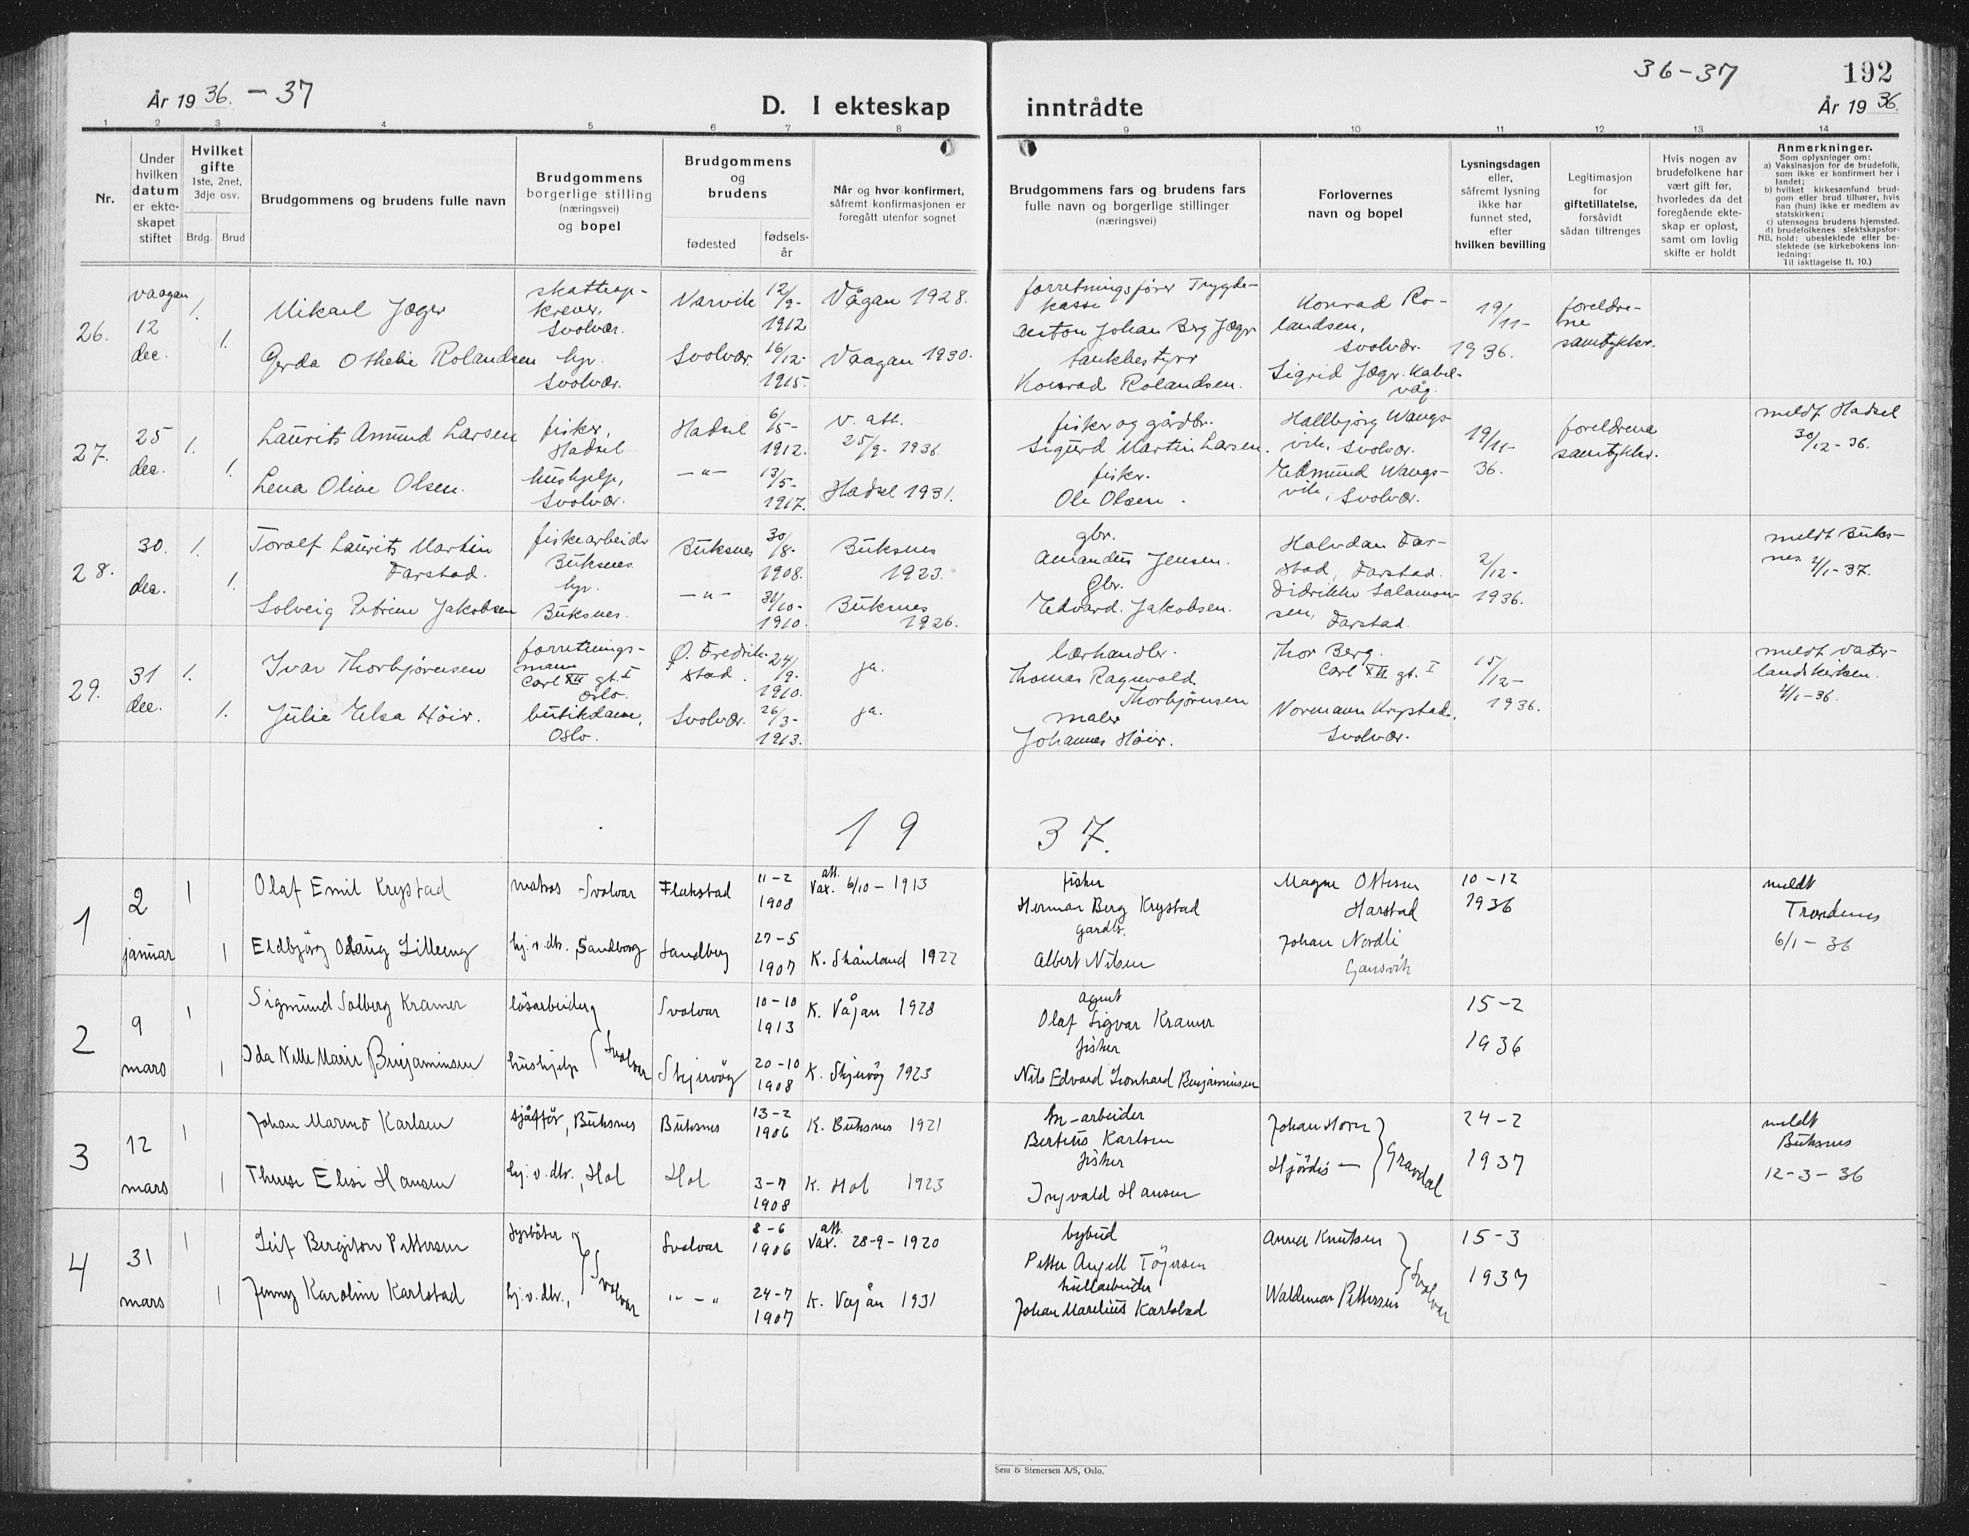 År 1936. - 37
D. I ekteskap inntrådte
36-37
192
År 1936.
1 2 3 4 5 6 7 8 9 10 11 12 13 14
Nr.
Under hvilken datum er ekteskapet stiftet
Hvilket gifte
1ste, 2net, 3dje osv.
Brdg. Brud
Brudgommens og brudens fulle navn
Brudgommens borgerlige stilling (næringsvei) og bopel
Brudgommens og brudens
fødested
fødselsår
Når og hvor konfirmert, såfremt konfirmasjonen er foregått utenfor sognet
Brudgommens fars og brudens fars fulle navn og borgerlige stillinger (næringsvei)
Forlovernes navn og bopel
Lysningsdagen eller, såfremt lysning ikke har funnet sted, efter hvilken bevilling
Legitimasjon for giftetillatelse, forsåvidt sådan tiltrenges
Hvis nogen av brudefolkene har vært gift før, hvorledes da det foregående ekteskap er opløst, samt om lovlig skifte er holdt
Anmerkninger.
Som oplysninger om:
a) Vaksinasjon for de brudefolk, som ikke er konfirmert her i landet;
b) hvilket kirkesamfund brudgom eller brud tilhører, hvis han (hun) ikke er medlem av statskirken;
c) utensogns brudens hjemsted.
d) brudefolkenes slektskapsforhold: ubeslektede eller beslektede (se kirkebokens innledning:
NB.
Til iakttagelse II, 10.)
26.
vaagan
12
dec.
1.
1.
Mikael Jæger
Gerda Othelie Rolandsen
skatteopkrever,
Svolvær.
hp.
Svolvær.
Narvik
Svolvær.
12/9-
1912
16/12-
1915.
Vågan 1928.
Vaagan 1930.
forretningsfører Trygdekasse
Anton Johan Berg Jæger
tankbestyrer
Konrad Rolandsen.
Konrad Rolandsen,
Svolvær.
Sigrid Jæger. Kabelvåg.
19/11-
1936.
foreldrene
samtykker.
27.
25
dec.
1.
1.
Laurits Amund Larsen
Lena Olive Olsen.
fisker,
Hadsel
hushjelp,
Svolvær.
Hadsel
-"-
6/5-
1912.
13/5-
1917.
v. att.
25/9- 1936
Hadsel 1931.
fisker og gårdbr.
Sigurd Martin Larsen.
fisker.
Ole Olsen.
Hallbjørg Wangsvik, Svolvær.
Edmund Wangsvik, Svolvær.
19/11-
36.
foreldrene
samtykker.
meldt Hadsel
30/12-36.
28.
30.
dec.
1.
1.
Toralf Laurits Martin
Farstad.
Solveig Petrine Jakobsen
fiskearbeider
Buksnes
hp.
Buksnes.
Buksnes
-"-
30/8-
1908.
31/10-
1910.
Buksnes
1923.
Buksnes
1926.
gbr.
Amandus Jensen.
Gbr.
Edvard. Jakobsen.
Halvdan Farstad, Farstad.
Didrikke Salamonsen, Farstad.
2/12-
1936.
meldt Buksnes 4/1-37.
29.
31
dec.
1.
1.
Ivar Thorbjørnsen
Julie Elsa Høier.
forretningsmann
Carl XII gt. I
Oslo.
butikdame,
Oslo.
Ø. Fredrikstad.
Svolvær.
24/9-
1910.
26/3-
1913.
ja.
ja.
lærhandler.
Thomas Ragnvald
Thorbjørnsen
maler
Johannes Høier.
Thor Berg.
Carl XII gt. I
Normann Krystad,
Svolvær.
15/12-
1936.
meldt Vaterlandskirken.
4/1-36.
19 37.
1
2
januar
1
1
Olaf Emil Krystad
Eldbjörg Odaug Lilleeng
matros - Svolvær
hj. v. dtr., Sandborg
Flakstad
Sandberg
11-2
1908
27-5
1907
att.
Vax. 6/10-1913
K. Skånland 1922
fisker
Herman Berg Krystad
gardbr.
Albert Nilsen
Magne Ottesen
Harstad
Johan Nordli
Gansvik
10-12
1936
meldt
Trondenes
6/1-36
2
9
mars
1
1
Sigmund Solberg Kramer
Ida Nelle Marie Benjaminsen
lösarbeider
hushjelp
Svolvær
Svolvær
Skjervöy
10-10
1913
20-10
1908
K. Vågan 1928
K. Skjervöy 1923
agent
Olaf Sigvar Kramer
fisker
Nils Edvard Leonhard Benjaminsen
15-2
1936
3
12
mars
1
1
Johan Marino Karlsen
Therese Elise Hansen
sjåfför, Buksnes
hj. v. dtr., Hol
Buksnes
Hol
13-2
1906
3-7
1908
K. Buksnes 1921
K. Hol 1923
-arbeider
Berteus Karlsen
fisker
Ingvald Hansen
Johan Horn
Hjördis -
Gravdal
24-2
1937
meldt
Buksnes
12-3-36
4
31
mars
1
1
Leif Bergiton Pettersen
Jenny Karoline Karlstad
fyrböter
hj. v. dtr.,
Svolvær
Svolvær
"-"
8-6
1906
24-7
1907
att.
Vax. 28-9-1920
K. Vågån 1931
bybud
Petter Angell Töjersen
Johan Marelius Karlstad
Anna Knutsen
Waldemar Pettersen
Svolvær
15-3
1937
Sem & Stenersen A/S, Oslo.